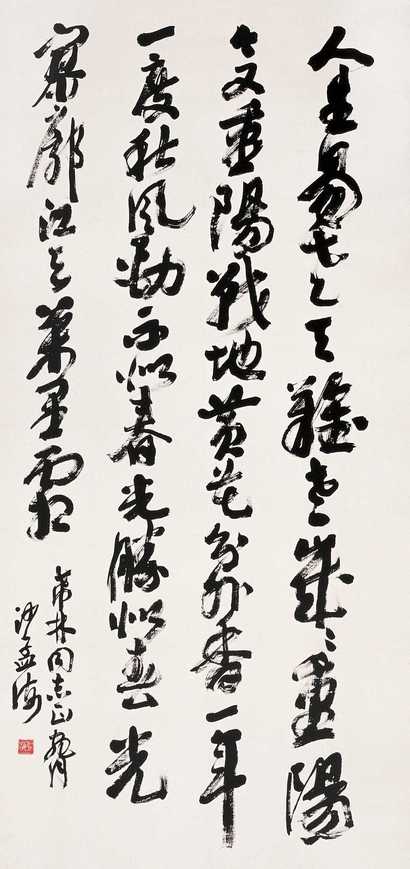 人生易老天难老岁岁重阳
今又重陽戰地黄花分外香一年
一度秋风勁不似春光勝似春光
寥廓江天萬里霜
林同志正
沙孟海